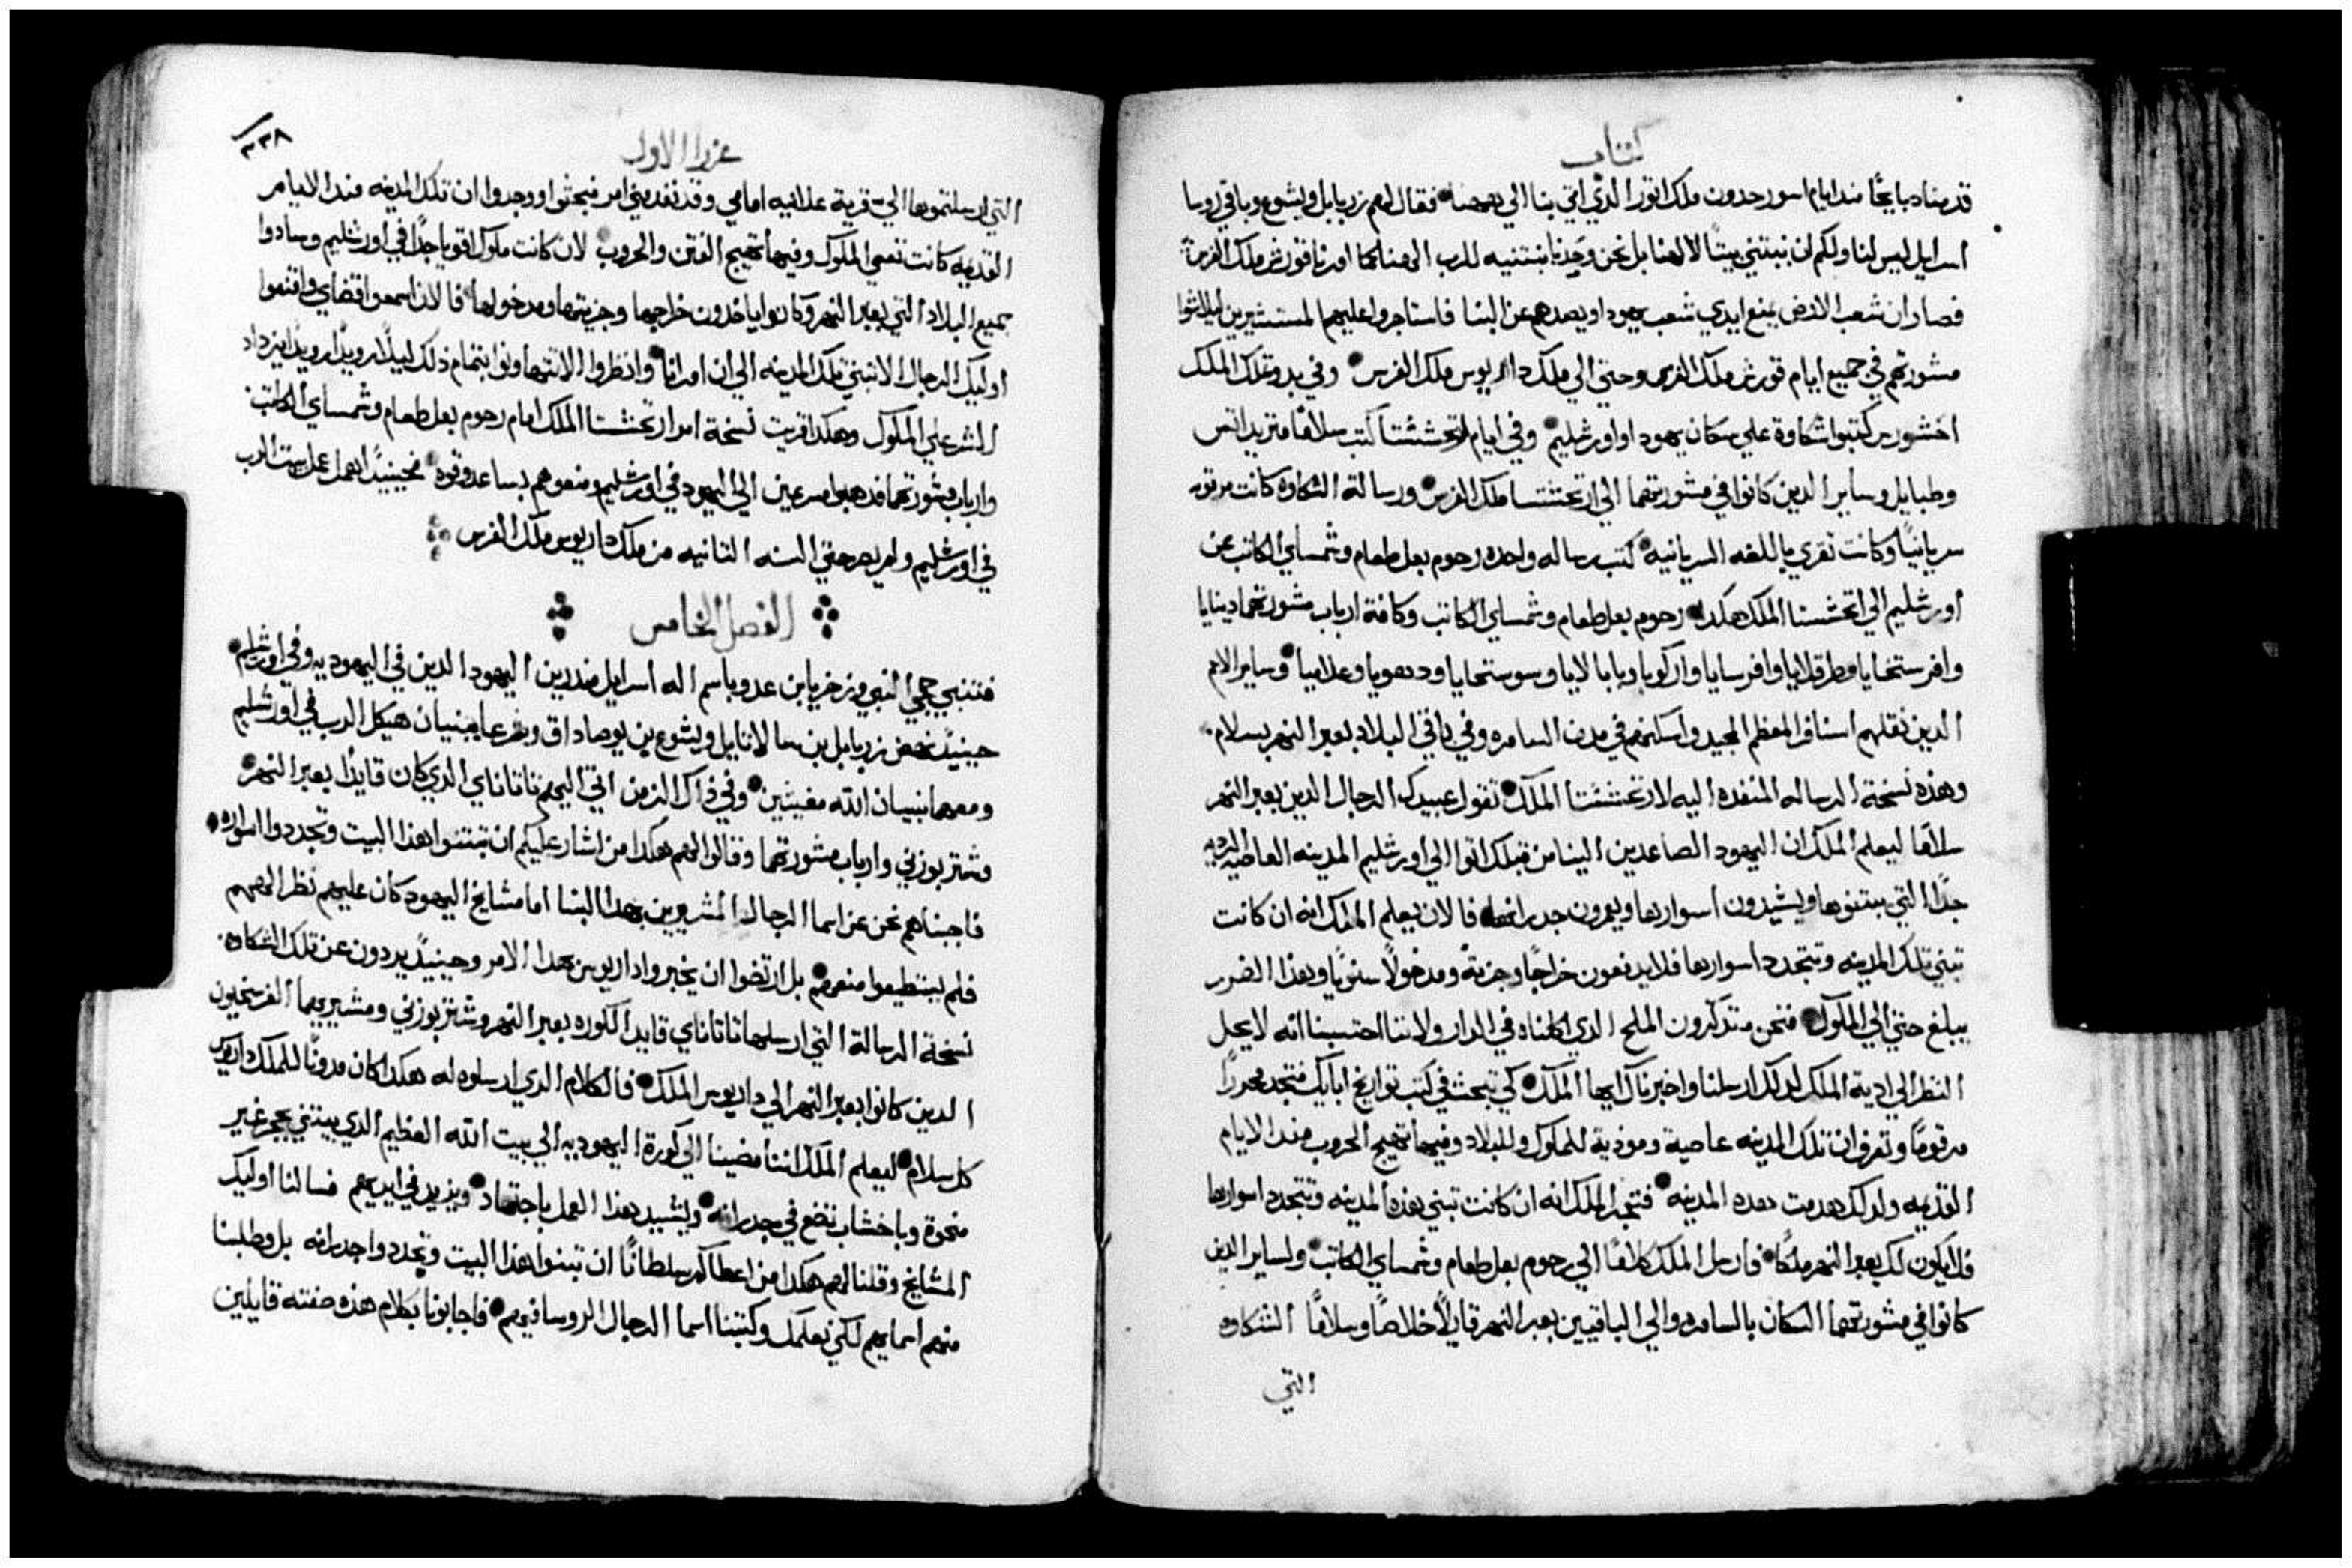 كتاب
قدمنا دبايحًا مند ايام اسور حدون ملك اتور الدي اتي بنا الي ههنا فقال لهم زربابل ويشوع وباقي روسا
اسرايل ليس لنا ولكم ان نبتني بيتًا لالهنا بل نحن وحدنا نبتنيه للرب الهنا كما امرنا قورش ملك الفرس
فصار ان شعب الارض يمنع ايدي شعب يهودا ويصدهم عن البنا فاستاجروا عليهم المستشيرين ليلاشوا
مشورتهم في جميع ايام قورش ملك الفرس وحتي الي ملك داريوس ملك الفرس وفي بدو تملك الملك
اخشورس كتبوا شكاوة علي سكان يهودا واورشليم وفي ايام ارتحششتا كتب سلامًا متريداتس
وطبايل وساير الدين كانوا في مشورتهما الي ارتحششتا ملك الفرس ورسالة الشكاوه كانت مرقومه
سريانيًا وكانت تقري باللغه السريانيه كتب رساله واحده رحوم بعل طعام وشمساي الكاتب من
اورشليم الي ارتحششتا الملك هكدا رحوم بعل طعام وشمساي الكاتب وكافة ارباب مشورتهما دينايا
وافرستخايا وطرفلايا وافرسايا واركويا وبابالايا وسوسنخايا ودهويا وعلاميا وساير الامم
الدين نقلهم اسنافر المعظم المجيد واسكنهم في مدن السامره وفي باقي البلاد بعبر النهر بسلام
وهذه نسخة الرساله المنفده اليه لارتحششتا الملك تقول عبيدك الرجال الدين بعبر النهر
سلامًا ليعلم الملك ان اليهود الصاعدين الينا من قبلك اتوا الي اورشليم المدينه العاصيه الرديه
جدًا التي يبتنوها ويشيدون اسوارها ويعمرون جدرانها فالان يعلم الملك انه ان كانت
تبني تلك المدينه وتتجدد اسوارها فلا يدفعون خراجًا وجزية ومدخولاً سنويًا وهذا الضرر
يبلغ حتي الي الملوك فنحن متدكرون الملح الدي اكلناه في الدار ولاننا احتسبنا انه لا يحل
النظر الي ادية الملك لدلك ارسلنا واخبرناك ايها الملك كي تبحث في كتب تواريخ ابايك فتجد محررًا
مرقومًا وتعرف ان تلك المدينه عاصية وموذية للملوك وللبلاد وفيها تهيج الحروب مند الايام
القديمه ولدلك هدمت هده المدينه فنخبر الملك انه ان كانت تبني هذه المدينه وتتجدد اسوارها
فلا يكون لك بعبر النهر ملكًا فارسل الملك كلامًا الي رحوم بعل طعام وشمساي الكاتب ولساير الدين
كانوا في مشورتهما السكان بالسامره والي الباقيين بعبر النهر قايلاً خلاصًا وسلامًا الشكاوه
التي
عزرا الاول
٣٣٨
التي ارسلتموها الي قرية علانيه امامي وقد نفد مني امر فبحثوا ووجدوا ان تلك المدينه مند الايام
القديمه كانت تعصي الملوك وفيها تهيج الفتن والحروب لان كانت ملوك اقويا جدًا في اورشليم وسادوا
جميع البلاد التي بعبر النهر وكانوا ياخدون خراجها وجزيتها ومدخولها فالان اسمعوا قضاي وامنعوا
اوليك الرجال الا تبتني تلك المدينه الي ان امرانا وانظروا الا تتهاونوا بتمام ذلك ليلا رويدًا رويدًا يزداد
الشر علي الملوك وهكدا قريت نسخة امر ارتحششتا الملك امام رحوم بعل طعام وشمساي الكاتب
وارباب مشورتهما فدهبوا مسرعين الي اليهود في اورشليم ومنعوهم بساعد وقوه فحينيدًا اهمل عمل بيت الرب
في اورشليم ولم يصر حتي السنه التانيه من ملك داريوس ملك الفرس
الفصل الخامس
فتنبي حجي النبي وزخريا بن عدو باسم اله اسرايل مندرين اليهود الدين في اليهوديه وفي اورشليم
حينيدً نهض زربابل بن سالاتايل ويشوع بن يوصاداق وشرعا يبنيان هيكل الرب في اورشليم
ومعهما نبيان الله مغيثين وفي ذاك الزمن اتي اليهم تاتاناي الدي كان قايدًا بعبر النهر
وشتربوزني وارباب مشورتهما وقالوا لهم هكدا من اشار عليكم ان تبتنوا هذا البيت وتجددوا اسواره
فاجبناهم نحن عن اسما الرجال المشيرين بهدا البنا اما مشايخ اليهود كان عليهم نظر الههم
فلم يستطيعوا منعهم بل ارتضوا ان يخبروا داريوس بهدا الامر وحينيدً يردون عن تلك الشكاوه
نسخة الرسالة التي ارسلها تاتاناي قايد الكوره بعبر النهر وشتربوزني ومشيريهما الفرسخيون
الدين كانوا بعبر النهر الي داريوس الملك فالكلام الدي ارسلوه له هكدا كان مدونًا للملك داريوس
كل سلام ليعلم الملك اننا مضينا الي كورة اليهوديه الي بيت الله العظيم الدي يبتني بحجر غير
منحوة وباخشاب تضع في جدرانه ويشيد هذا العمل باجتهاد ويزيد في ايديهم فسالنا اوليك
المشايخ وقلنا لهم هكدا من اعطاكم سلطانًا ان تبنوا هذا البيت وتجددوا جدرانه بل وطلبنا
منهم اسمايهم لكي نعلمك وكتبنا اسما الرجال الروسا فيهم فاجابونا بكلام هذه صفته قايلين